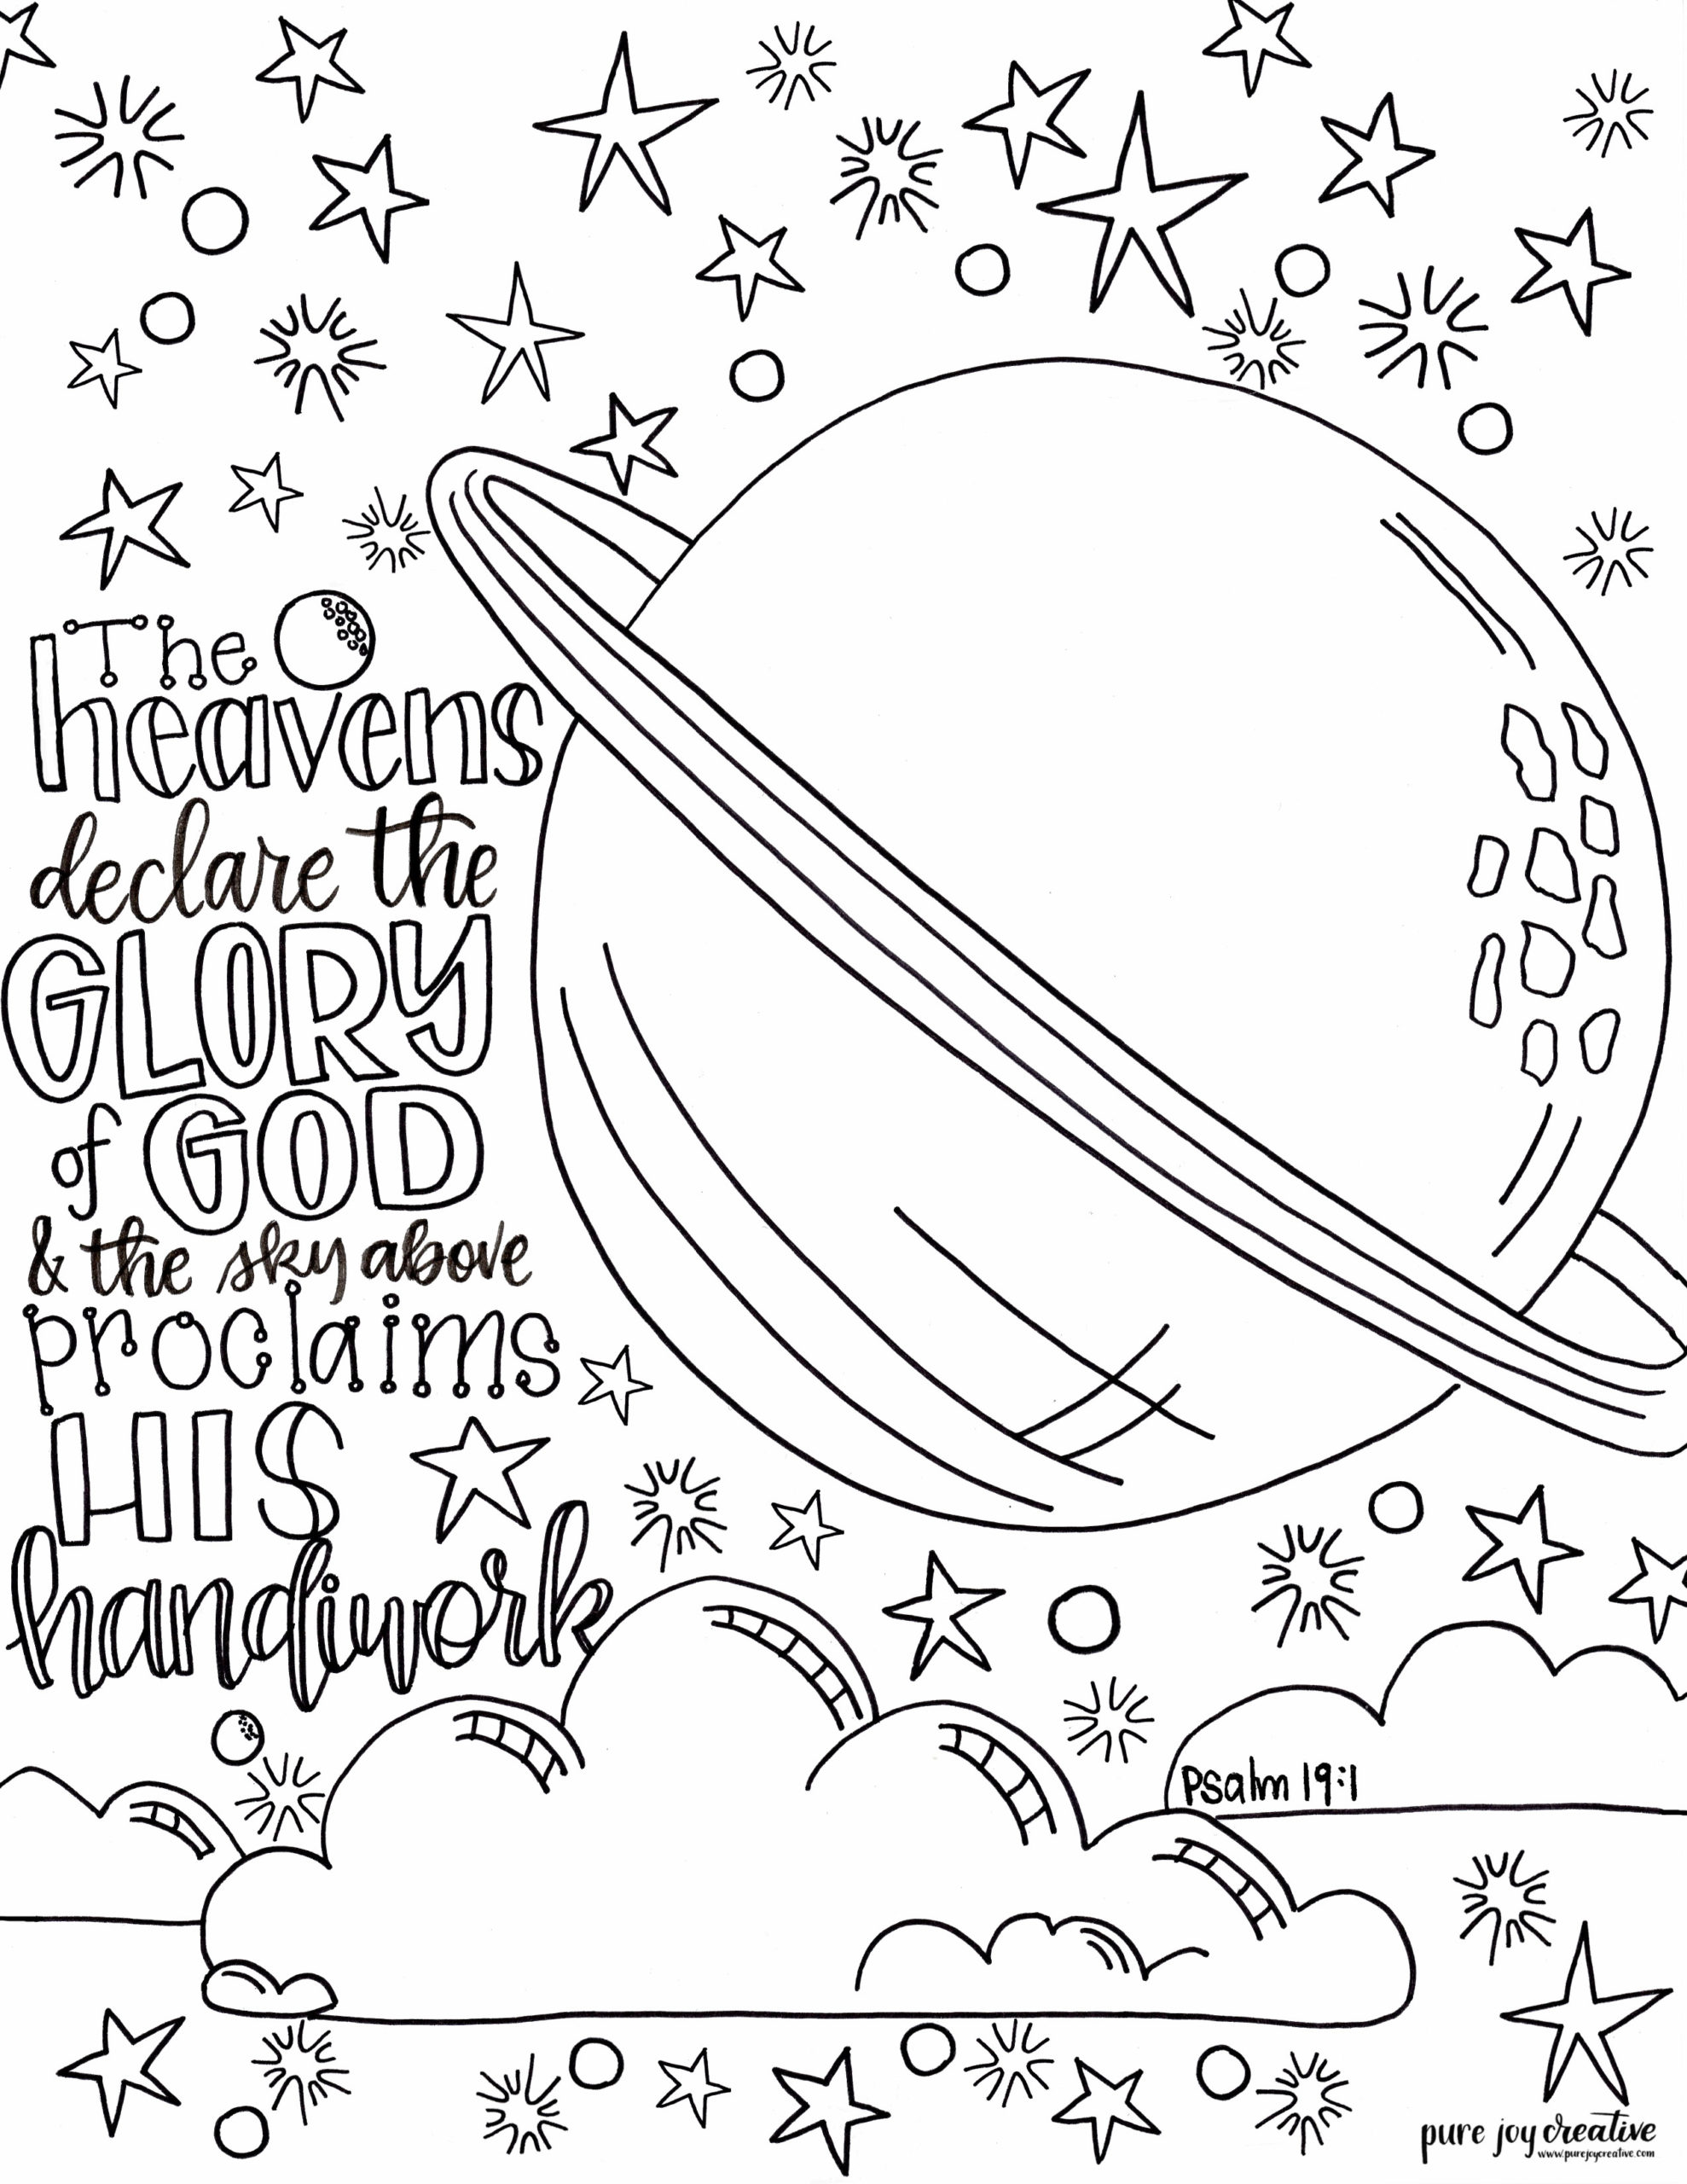 The
heavens
declare the
GLORY
of GOD
& the sky above
proclaims
HIS
handiwork
Psalm 19:1
pure joy creative
www.purejoycreative.com